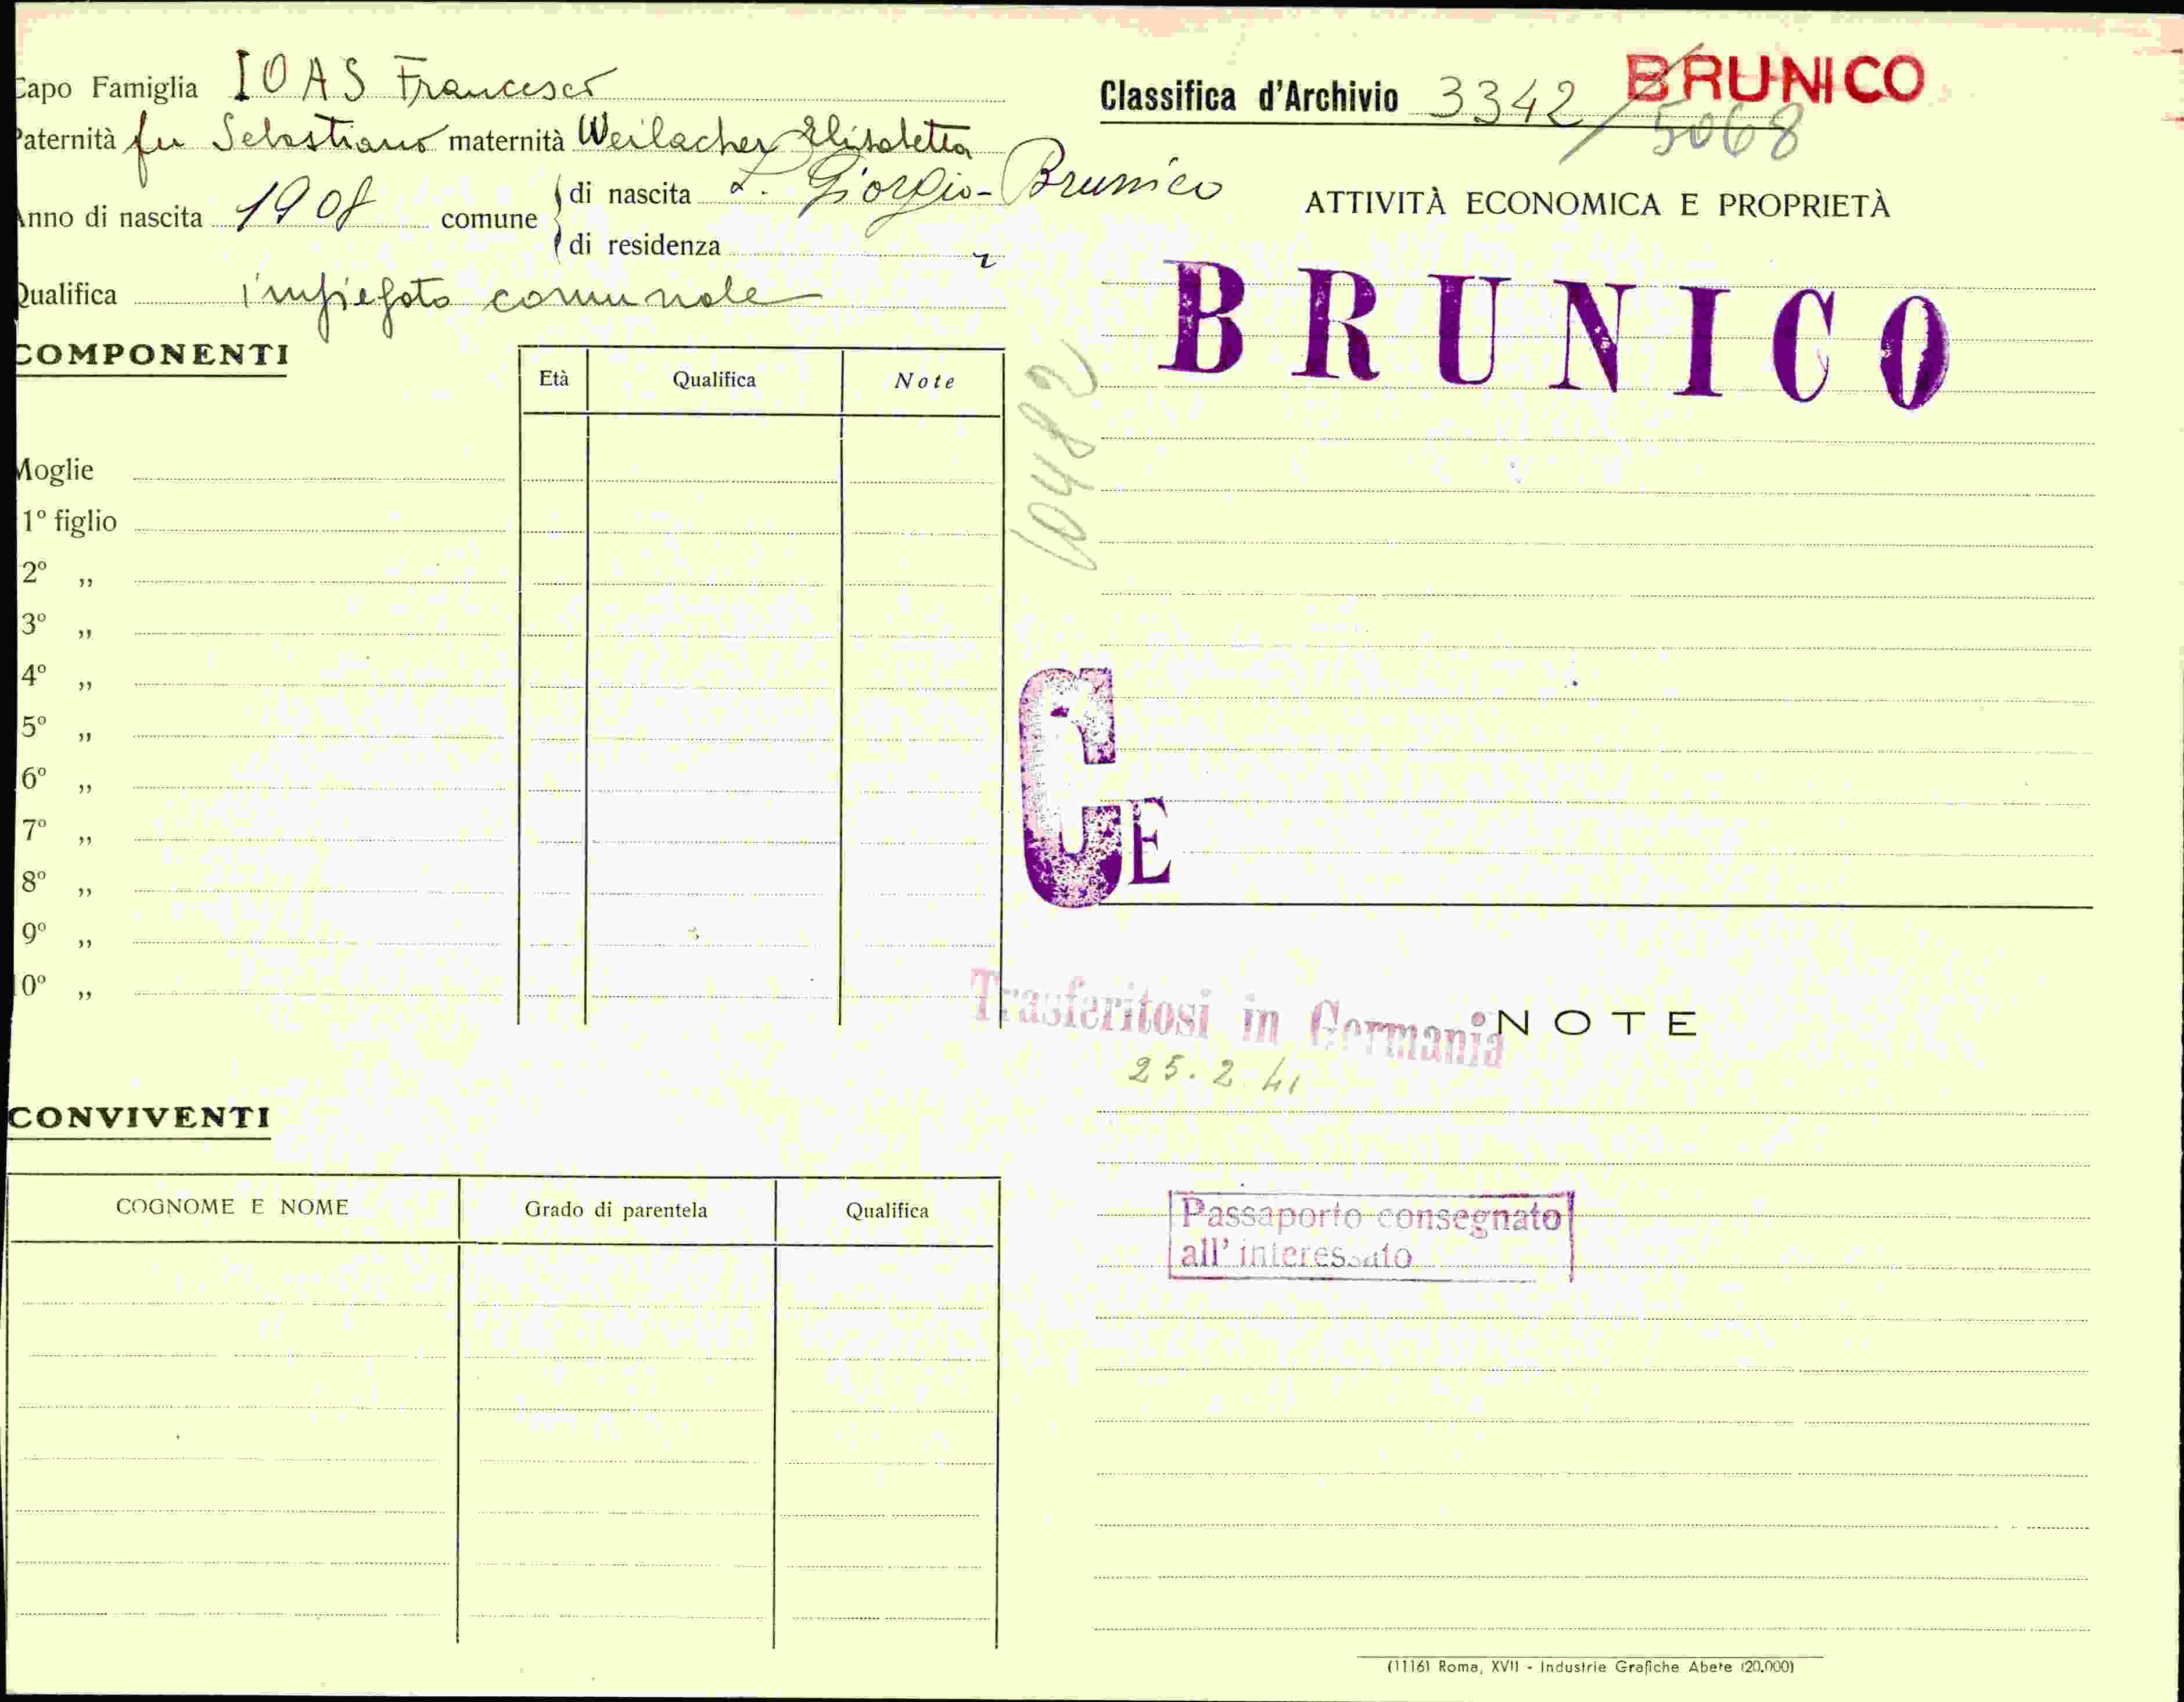 Capo Famiglia IOAS Francesco
Paternità fu Sebastiano maternità Weilacher Elisabetta
Anno di nascita 1908 comune di nascita S. Giorgio - Brunico
di residenza
Qualifica impiegato comunale
COMPONENTI
Età Qualifica Note
Moglie
1º figlio
2º „
3º „
4º „
5º „
6º „
7º „
8º „
9º „
10º „
CONVIVENTI
COGNOME E NOME Grado di parentela Qualifica
Classifica d'Archivio 3342/5068
BRUNICO
ATTIVITÀ ECONOMICA E PROPRIETÀ
BRUNICO
10482
C E
Trasferitosi in Germania
25.2.41
NOTE
Passaporto consegnato
all'interessato
(1116) Roma, XVII - Industrie Grafiche Abete (20.000)